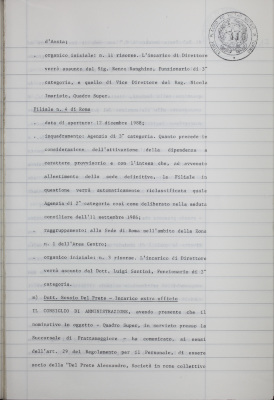 d'Anzio;
. organico iniziale: n. 11 risorse. L'incarico di Direttore
verrà assunto dal Sig. Mauro Ranghino, Funzionario di 1^
categoria, e quello di Vice Direttore dal Rag. Nicola
Quadro Super.
Filiale n. 6 di Roma
. data di apertura: 17 dicembre 1988;
. inquadramento: Agenzia di 3^ categoria. Quanto precede in
considerazione dell'attivazione della dipendenza a
carattere provvisorio e con l'intesa che, ad avvenuto
allestimento della sede definitiva, la Filiale in
questione verrà automaticamente riclassificata quale
Agenzia di 2^ categoria così come deliberato nella seduta
consiliare dell'11 settembre 1986;
. raggruppamento: alla Sede di Roma nell'ambito della Zona
n. 1 dell'Area Centro;
. organico iniziale: n. 9 risorse. L'incarico di Direttore
verrà assunto dal Dott. Luigi Santini, Funzionario di 2^
categoria.
Dott. Renzo Del Prete - Incarico extra ufficio
IL CONSIGLIO DI AMMINISTRAZIONE, avendo presente che il
nominativo in oggetto - Quadro Super, in servizio presso la
Succursale di - ha comunicato, ai sensi
dell'art. 29 del Regolamento per il Personale, di essere
socio della "Del Prete Alessandro, Società in nome collettivo